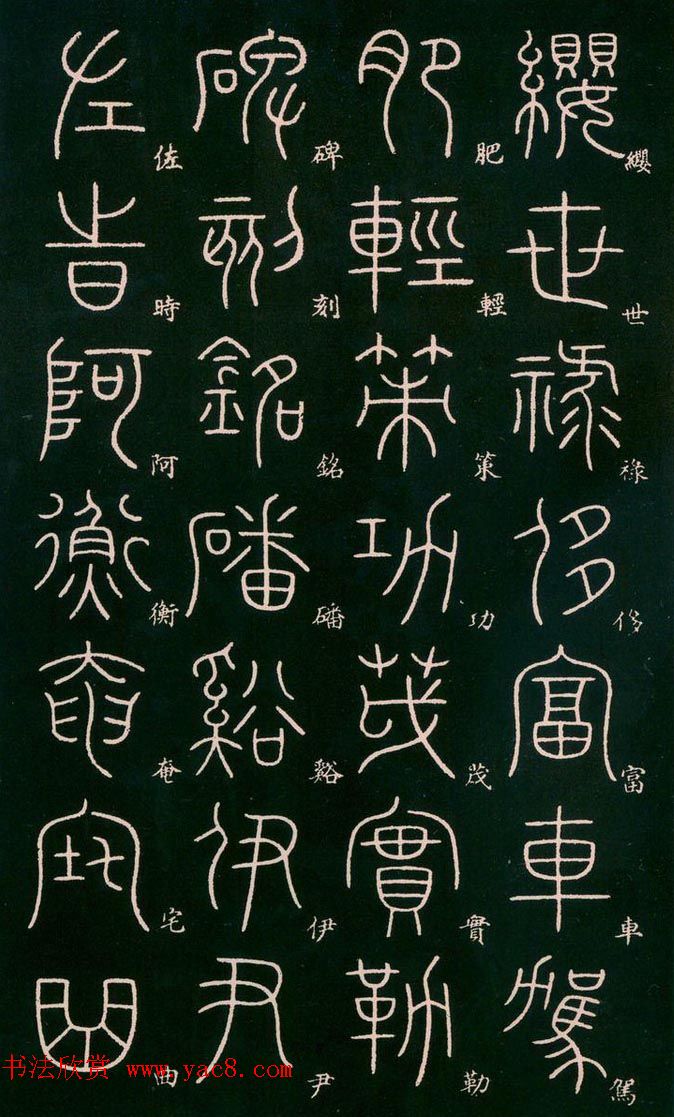 纓世祿侈富車駕
肥輕策功茂實勒
碑刻銘磻谿伊尹
佐時阿衡奄宅曲
书法欣赏 www.yac8.com